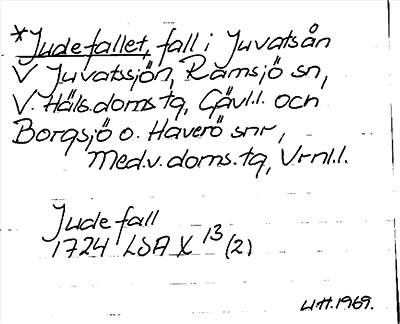 *Judefallet, fall i Juvatsån
V Juvatssjön, Ramsjö sn,
V. Häls.doms tg, Gävl.l. och
Borgsjö o. Haverö snr,
Med.v.doms.tg, Vrnl.l.
Jude fall
1724 LSA X 13 (2)
W.H. 1969.